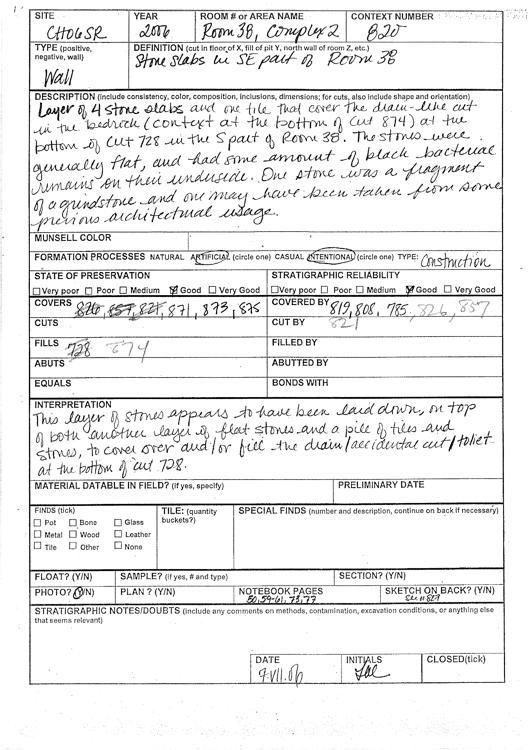 SITE YEAR ROOM # or AREA NAME CONTEXT NUMBER
CH06SR 2006 Room 38, Complex 2 820
TYPE (positive, negative, wall) DEFINITION (cut in floor of X, fill of pit Y, north wall of room Z, etc.)
Wall Stone slabs in SE part of Room 38
DESCRIPTION (include consistency, color, composition, inclusions, dimensions; for cuts, also include shape and orientation)
Layer of 4 stone slabs and one tile that cover the drain-like cut
in the bedrock (context at the bottom of cut 874) at the
bottom of cut 728 in the S part of Room 38. The stones were
generally flat, and had some amount of black bacterial
remains on their underside. One stone was a fragment
of a grindstone and one may have been taken from some
previous architectural usage.
MUNSELL COLOR
FORMATION PROCESSES NATURAL ARTIFICIAL (circle one) CASUAL INTENTIONAL (circle one) TYPE: Construction
STATE OF PRESERVATION STRATIGRAPHIC RELIABILITY
Very poor Poor Medium Good Very Good Very poor Poor Medium Good Very Good
COVERS 871, 873, 875 COVERED BY 819, 808, 785, 826, 857
CUTS CUT BY 821
FILLS 728 874 FILLED BY
ABUTS ABUTTED BY
EQUALS BONDS WITH
INTERPRETATION
This layer of stones appears to have been laid down, on top
of both another layer of flat stones and a pile of tiles and
stones, to cover over and/or fill the drain/accidental cut/toilet
at the bottom of cut 728.
MATERIAL DATABLE IN FIELD? (if yes, specify) PRELIMINARY DATE
FINDS (tick) TILE: (quantity buckets?) SPECIAL FINDS (number and description, continue on back if necessary)
Pot Bone Glass
Metal Wood Leather
Tile Other None
FLOAT? (Y/N) SAMPLE? (if yes, # and type) SECTION? (Y/N)
PHOTO? (Y/N) PLAN ? (Y/N) NOTEBOOK PAGES SKETCH ON BACK? (Y/N)
50, 59-61, 73, 77
STRATIGRAPHIC NOTES/DOUBTS (include any comments on methods, contamination, excavation conditions, or anything else
that seems relevant)
DATE INITIALS CLOSED(tick)
9.VII.06